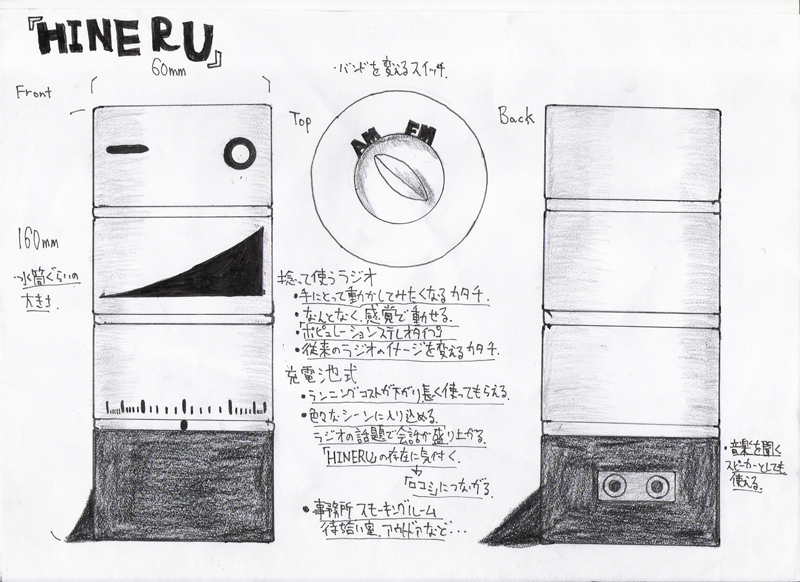 『HINERU』
60mm
Front
160mm
・水筒ぐらいの
大きさ.
・バンドを変えるスイッチ.
Top
AM FM
Back
捻って使うラジオ
・手にとって動かしてみたくなるカタチ.
・なんとなく、感覚で動せる.
・「ポピュレーションステレオタイプ」
・従来のラジオのイメージを変えるカタチ.
充電池式
・ランニングコストが下がり長く使ってもらえる.
・色々なシーンに入り込める.
ラジオの話題で会話が盛り上がる.
「HINERU」の存在に気付く.
「口コミ」につながる.
・事務所 スモーキングルーム
待合い室、アウトドアなど・・・
・音楽を聞く
スピーカーとしても
使える.